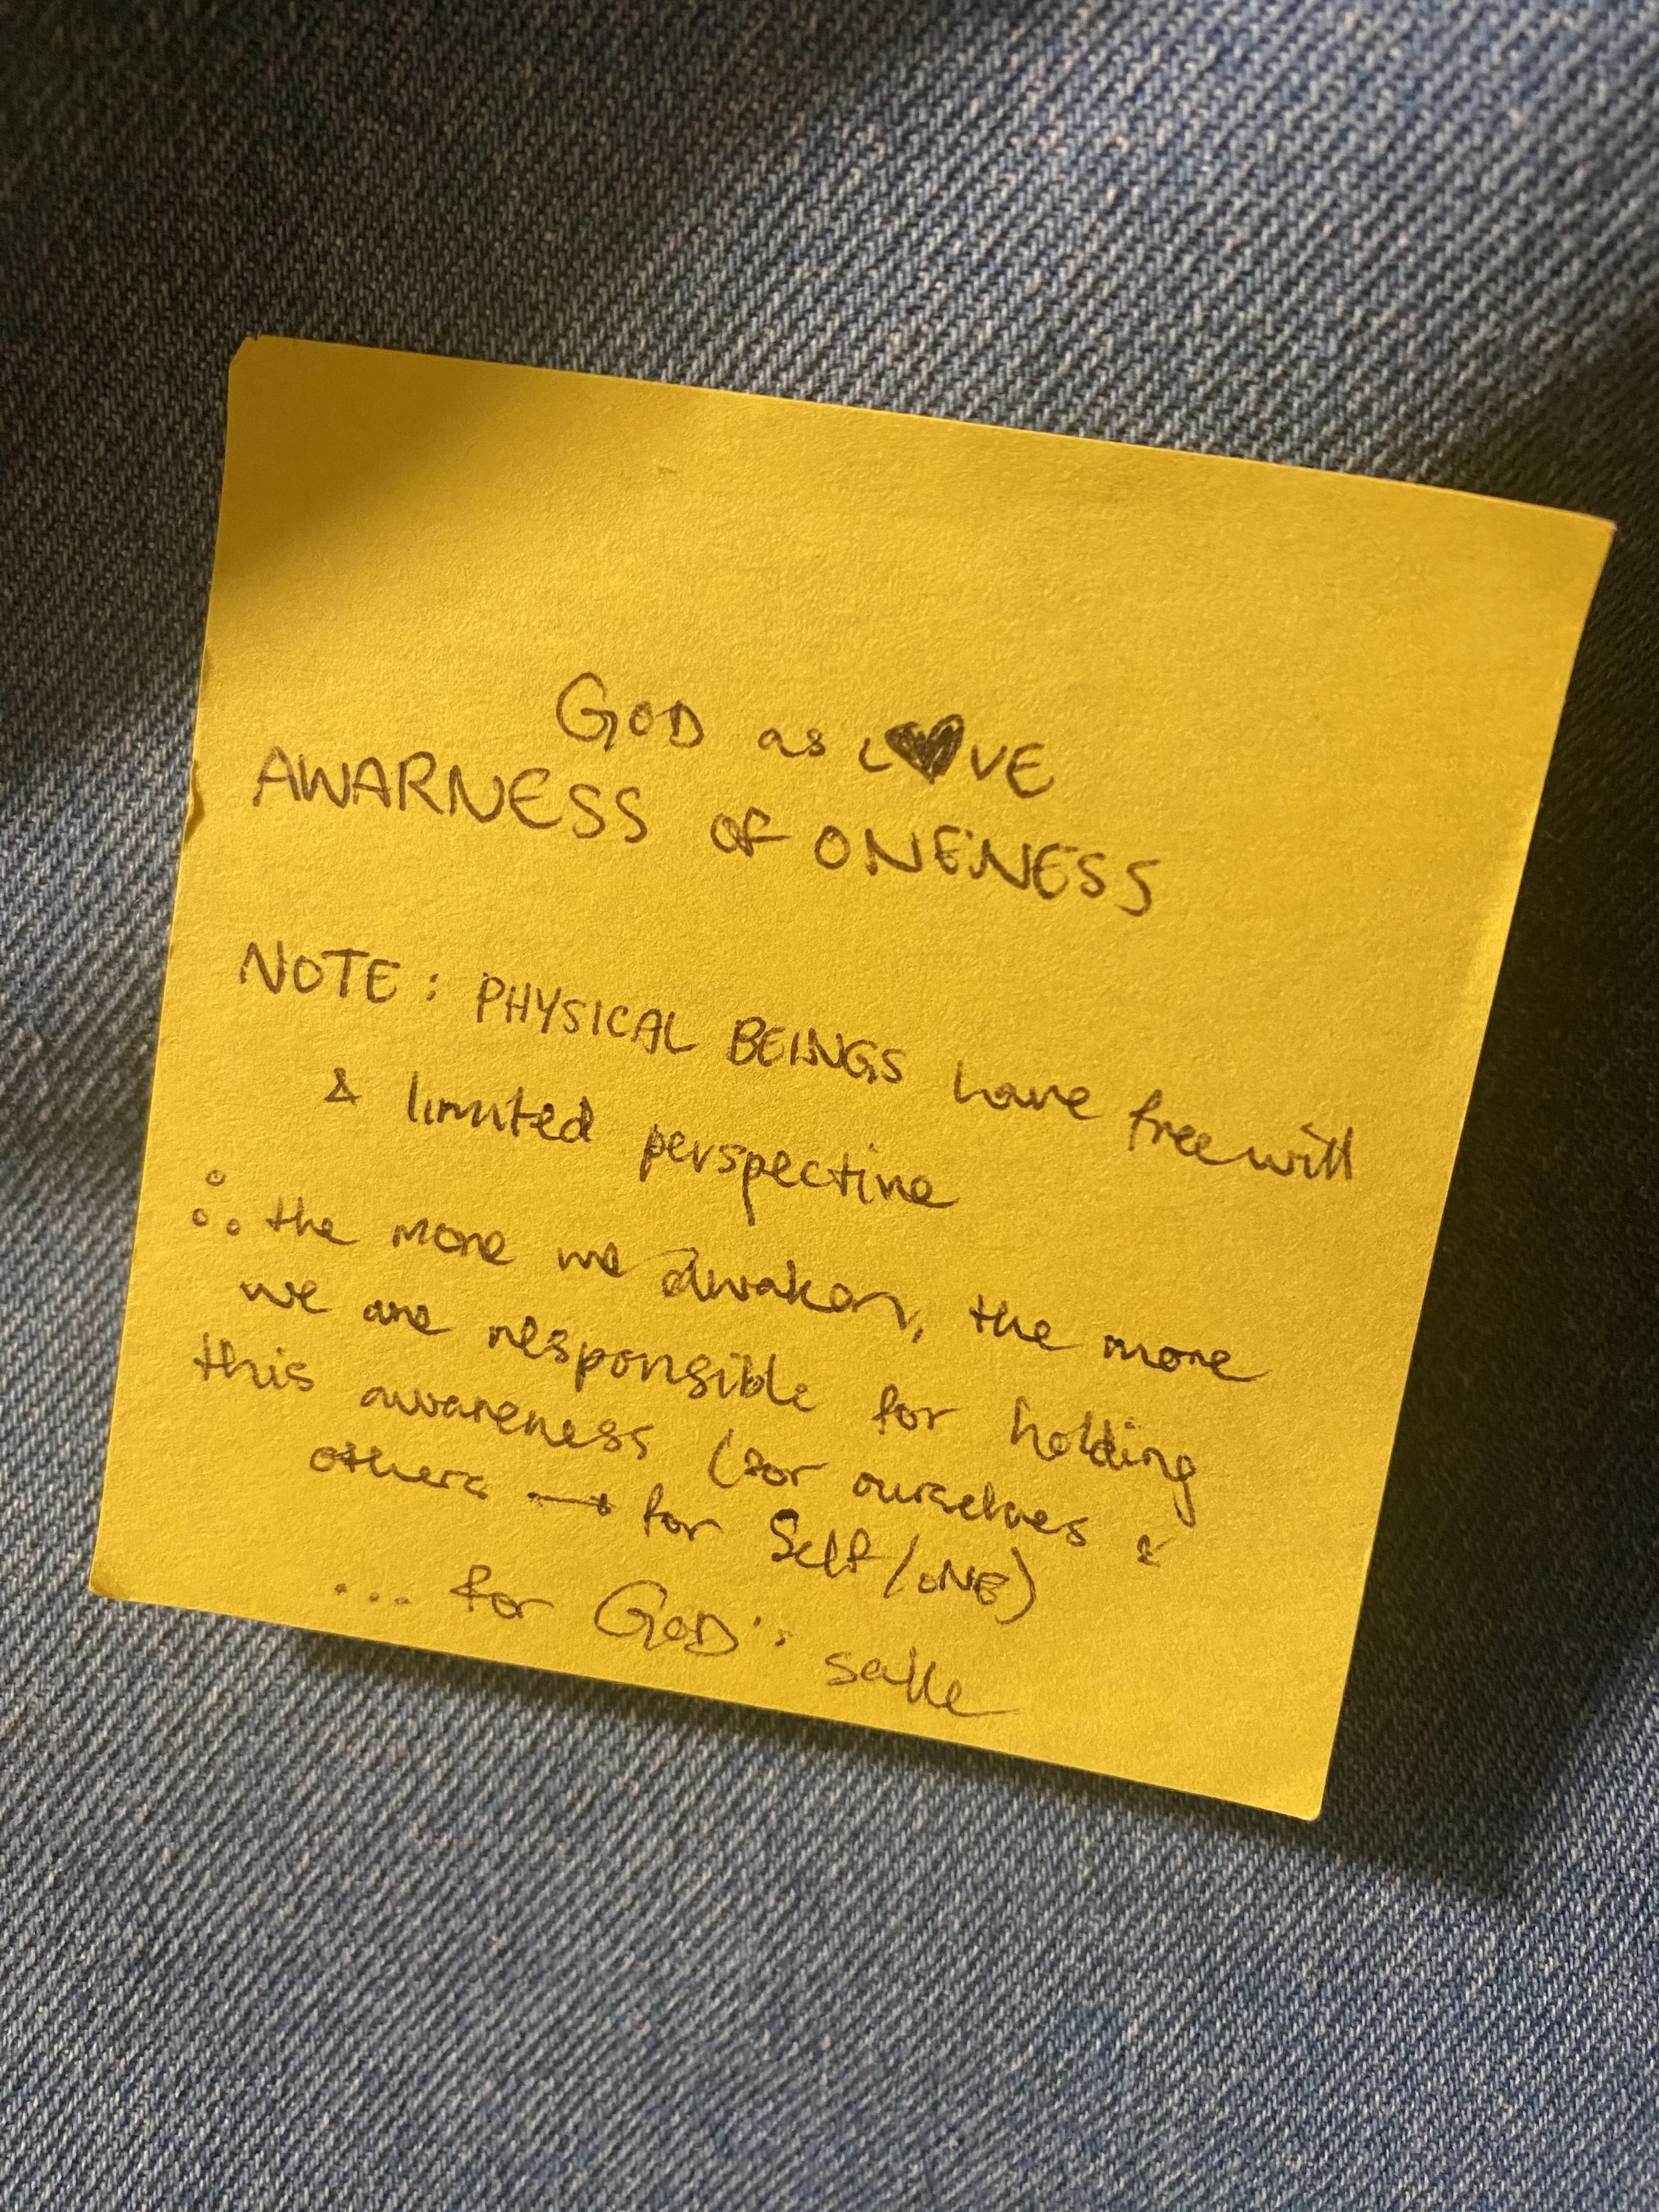 GOD as L♥VE
AWARNESS of ONENESS
NOTE: PHYSICAL BEINGS have freewill
& limited perspective
∴ the more we awaken, the more
we are responsible for holding
this awareness (for ourselves &
others → for Self/ONE)
... for GOD's sake